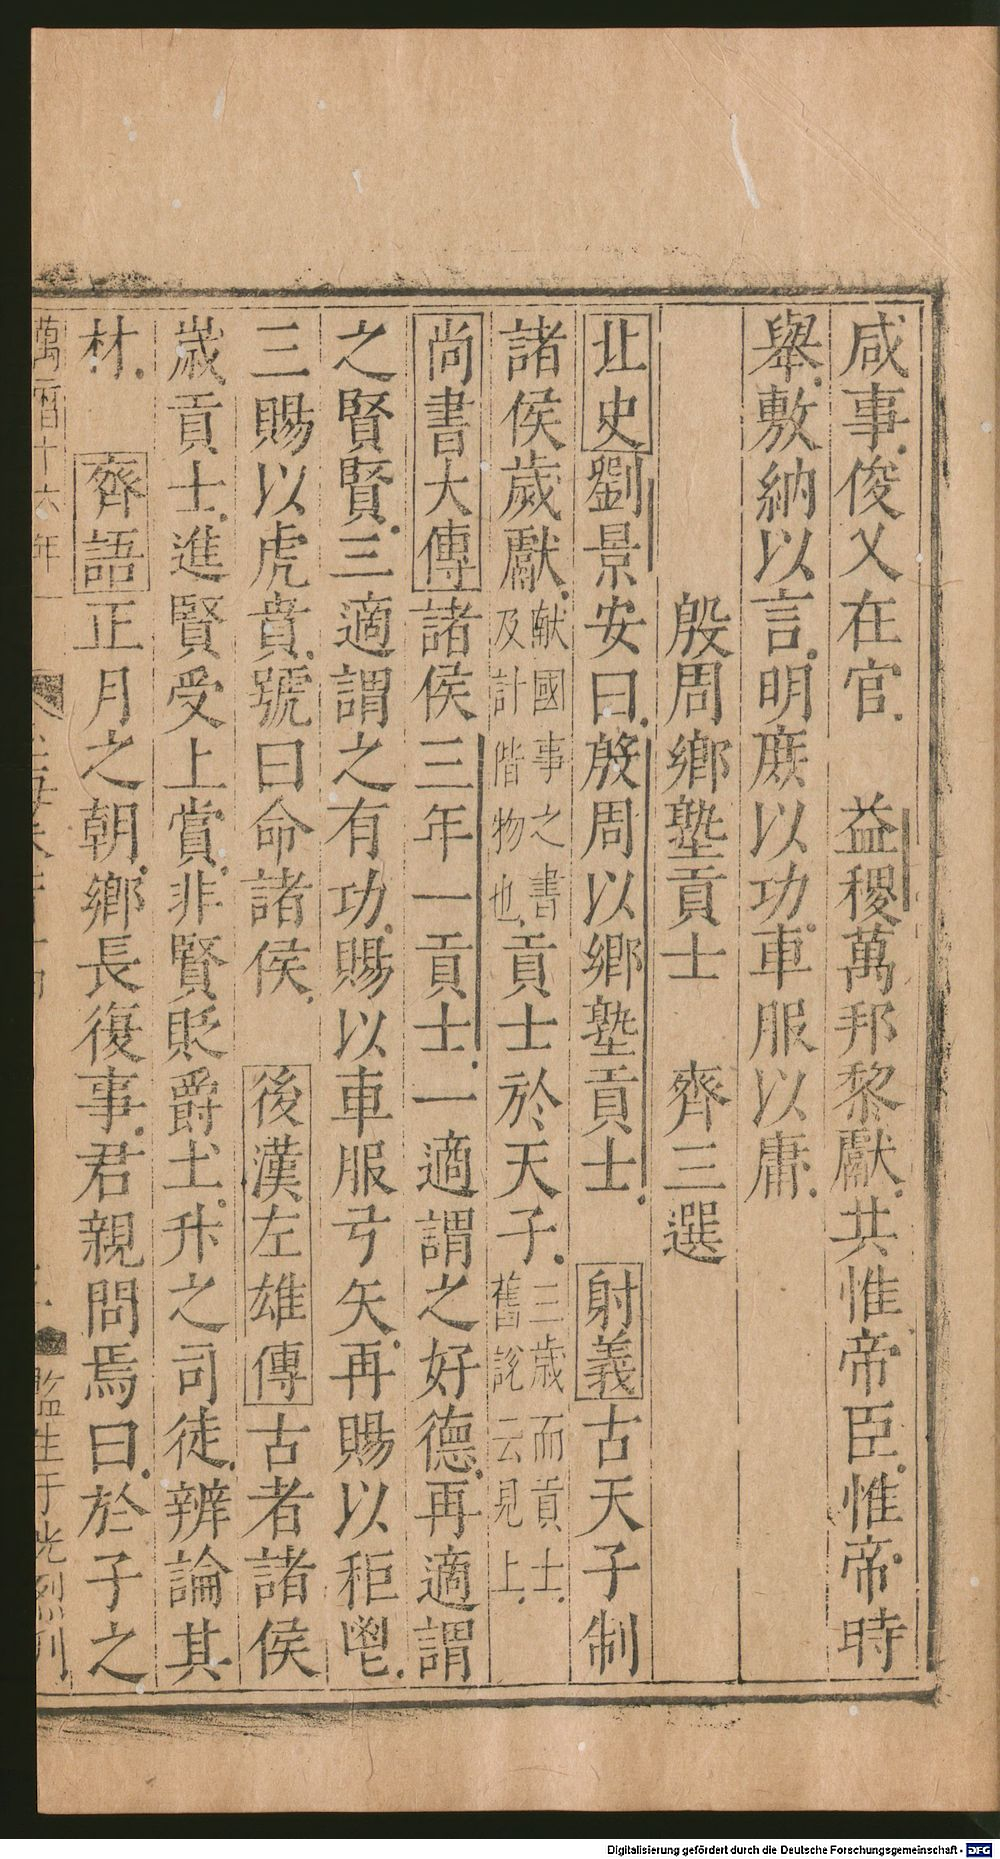 咸事俊乂在官　益稷萬邦黎獻共惟帝臣惟帝時
舉敷納以言明庶以功車服以庸
殷周鄉塾貢士　齊三選
北史劉景安曰殷周以鄉塾貢士　射義古天子制
諸侯歲獻献國事之書及計偕物也貢士於天子三歲而貢士舊說云見上
尚書大傳諸侯三年一貢士一適謂之好德再適謂
之賢賢三適謂之有功賜以車服弓矢再賜以秬鬯
三賜以虎賁號曰命諸侯　後漢左雄傳古者諸侯
歲貢士進賢受上賞非賢貶爵土升之司徒辨論其
材　齊語正月之朝鄉長復事君親問焉曰於子之
萬曆十六年
監生于光烈刊
Digitalisierung gefördert durch die Deutsche Forschungsgemeinschaft - DFG